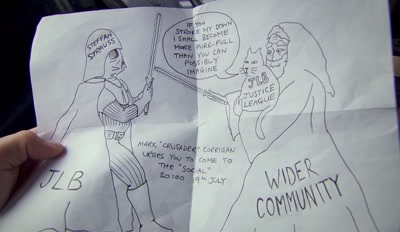 STEFFAN
STRAUSS
IF YOU
STROKE MY DOWN
I SHALL BECOME
MORE PURR-FULL
THAN YOU CAN
POSSIBLY
IMAGINE
JLB
JUSTICE
LEAGUE
MARK "CRUSADER" CORRIGAN
URGES YOU TO COME TO
THE "SOCIAL"
20:00 19th JULY
JLB
WIDER
COMMUNITY